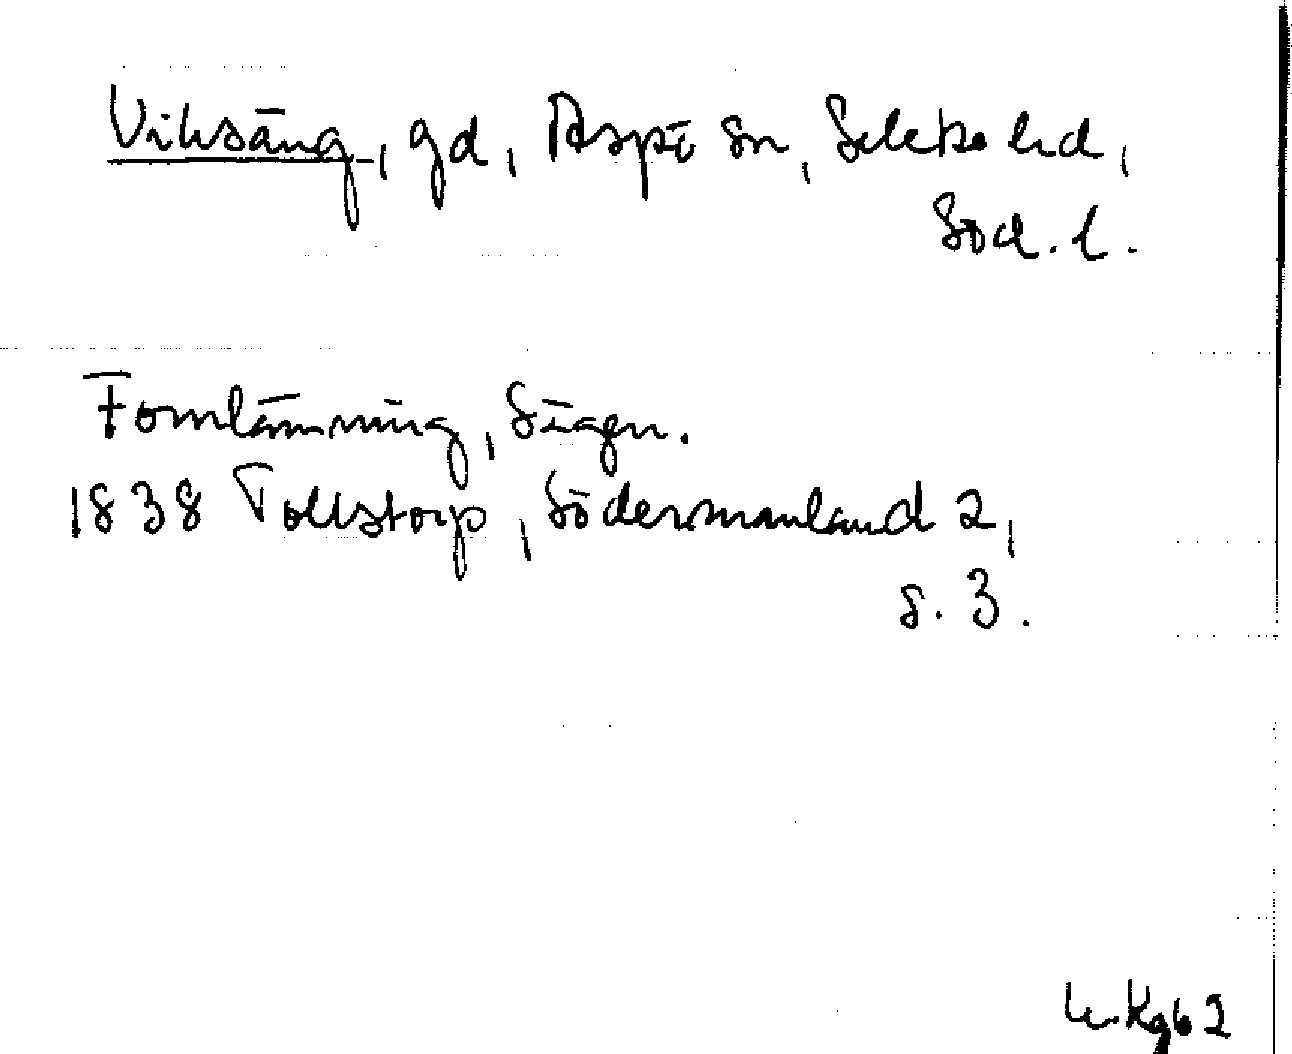 Viksäng, gd, Aspö sn, Selebo hd,
Söd. l.
Fornlämning, Sägen.
1838 Tollstorp, Södermanland 2,
s. 3.